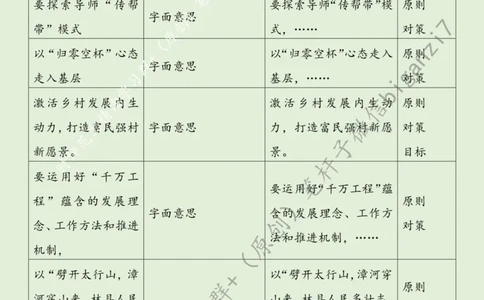 要探索导师“传帮
带”模式
字面意思
要探索导师“传帮带”模
式，……
原则
对策
以“归零空杯”心态
走入基层
字面意思
以“归零空杯”心态走入
基层，……
原则
对策
激活乡村发展内生
动力，打造富民强村
新愿景。
字面意思
激活乡村发展内生动
力，打造富民强村新愿
景。
原则
对策
目标
要运用好“千万工
程”蕴含的发展理
念、工作方法和推进
机制，
字面意思
要运用好“千万工程”蕴
含的发展理念、工作方
法和推进机制，……
原则
对策
以“劈开太行山，漳
河穿山来，林县人民
以“劈开太行山，漳河穿
山来，林县人民多壮志
原则
群+（原创）笔杆子微信biganzi7